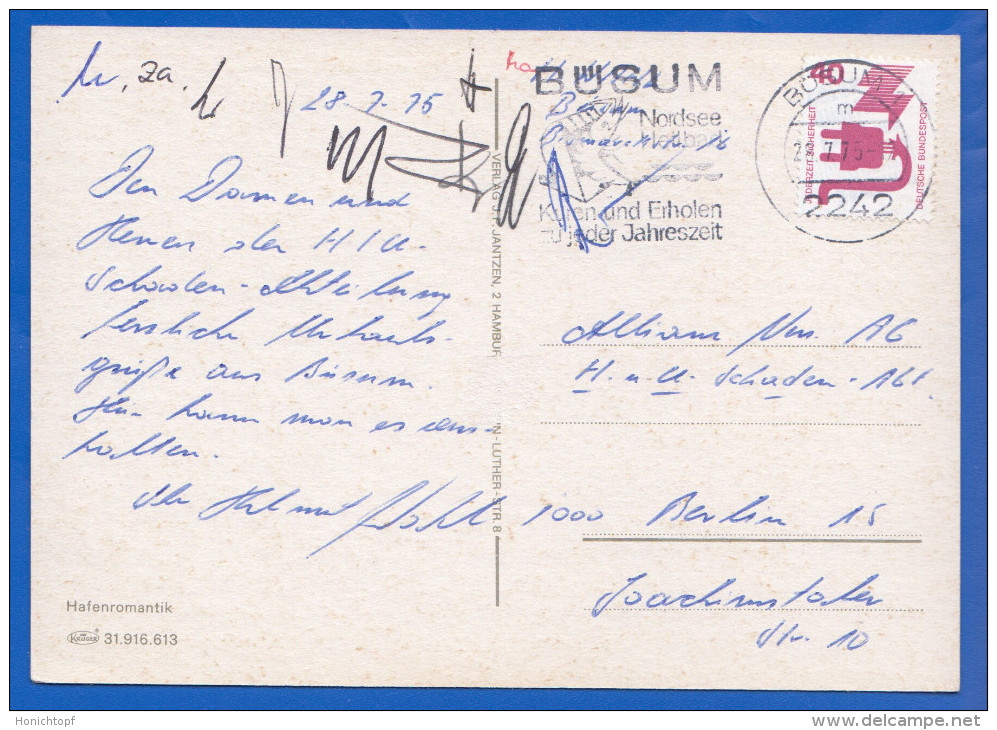 28.7.75
Den Damen und
Herren der H/U-
Schaden-Abteilung
herzliche Urlaubs-
grüße aus Büsum.
Hier kann man es aus-
halten.
Ihr Helmut
Hafenromantik
KRÜGER 31.916.613
VERLAG J. JANTZEN, 2 HAMBUR
N-LUTHER-STR. 8
BÜSUM
Nordsee
Heilbad
Kuren und Erholen
zu jeder Jahreszeit
BÜSUM
m
7.75
2242
40
JEDERZEIT SICHERHEIT
DEUTSCHE BUNDESPOST
Allianz Vers. AG
H. u. U. Schaden-Abt
1000 Berlin 15
Joachimstaler
Str. 10
Honichtopf
www.delcampe.net